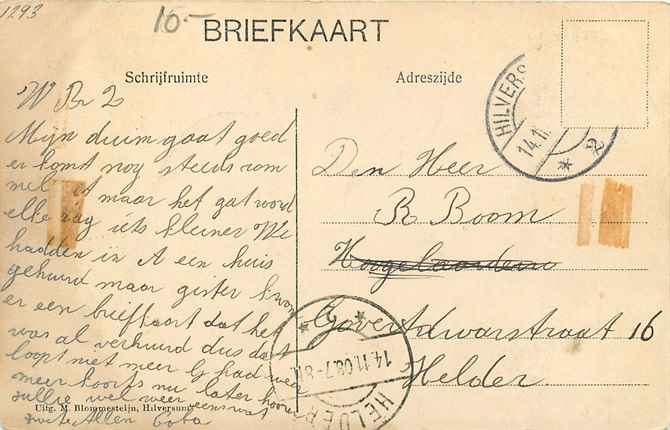 1293
10.-
BRIEFKAART
Schrijfruimte
Adreszijde
HILVERS
14.11
2
W Br Z
Mijn duim gaat goed
er komt nog steeds
maar het gat word
elke dag iets kleiner We
hadden in A een huis
gehuurd maar gister kwam
er een briefkaart dat het
was al verhuurd dus dat
loopt niet meer G had weer
meer koorts nu later hooren
jullie wel weer eens wat
Allen Coba
Den Heer
R Boom
Govert
straat 16
Helder
14.11.08.7-8
HELDER
Uitg. M. Blommesteijn, Hilversum